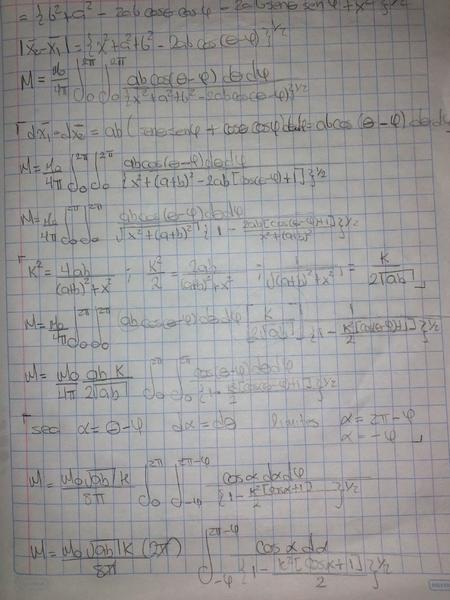 = {b² + a² - 2ab cosθ cosφ - 2ab senθ senφ + x²}^1/2
|x̄₂-x̄₁| = {x² + a² + b² - 2ab cos(θ-φ)}^1/2
M = μ₀/4π ∫₀^2π ∫₀^2π ab cos(θ-φ) dθ dφ / {x² + a² + b² - 2ab cos(θ-φ)}^1/2
dx̄₁·dx̄₂ = ab( senθ senφ + cosθ cosφ) dθdφ = ab cos(θ-φ) dθ dφ
M = μ₀/4π ∫₀^2π ∫₀^2π ab cos(θ-φ) dθ dφ / {x² + (a+b)² - 2ab [cos(θ-φ) + 1]}^1/2
M = μ₀/4π ∫₀^2π ∫₀^2π ab cos(θ-φ) dθ dφ / √(x² + (a+b)²) {1 - 2ab[cos(θ-φ)+1] / x² + (a+b)²}^1/2
K² = 4ab / (a+b)² + x² ; K²/2 = 2ab / (a+b)² + x² ; 1/√((a+b)² + x²) = K / 2√ab
M = μ₀/4π ∫₀^2π ∫₀^2π ab cos(θ-φ) dθ dφ [K / 2√ab] 1 / {1 - K²/2 [cos(θ-φ)+1]}^1/2
M = μ₀/4π ab K / 2√ab ∫₀^2π ∫₀^2π cos(θ-φ) dθ dφ / {1 - K²/2 [cos(θ-φ)+1]}^1/2
sea α = θ - φ dα = dθ limites α = 2π - φ
α = -φ
M = μ₀ √ab K / 8π ∫₀^2π ∫_-φ^2π-φ cos α dα dφ / {1 - K²/2 [cos α + 1]}^1/2
M = μ₀ √ab K (2π) / 8π ∫_-φ^2π-φ cos α dα / {1 - K² [cos α + 1] / 2}^1/2